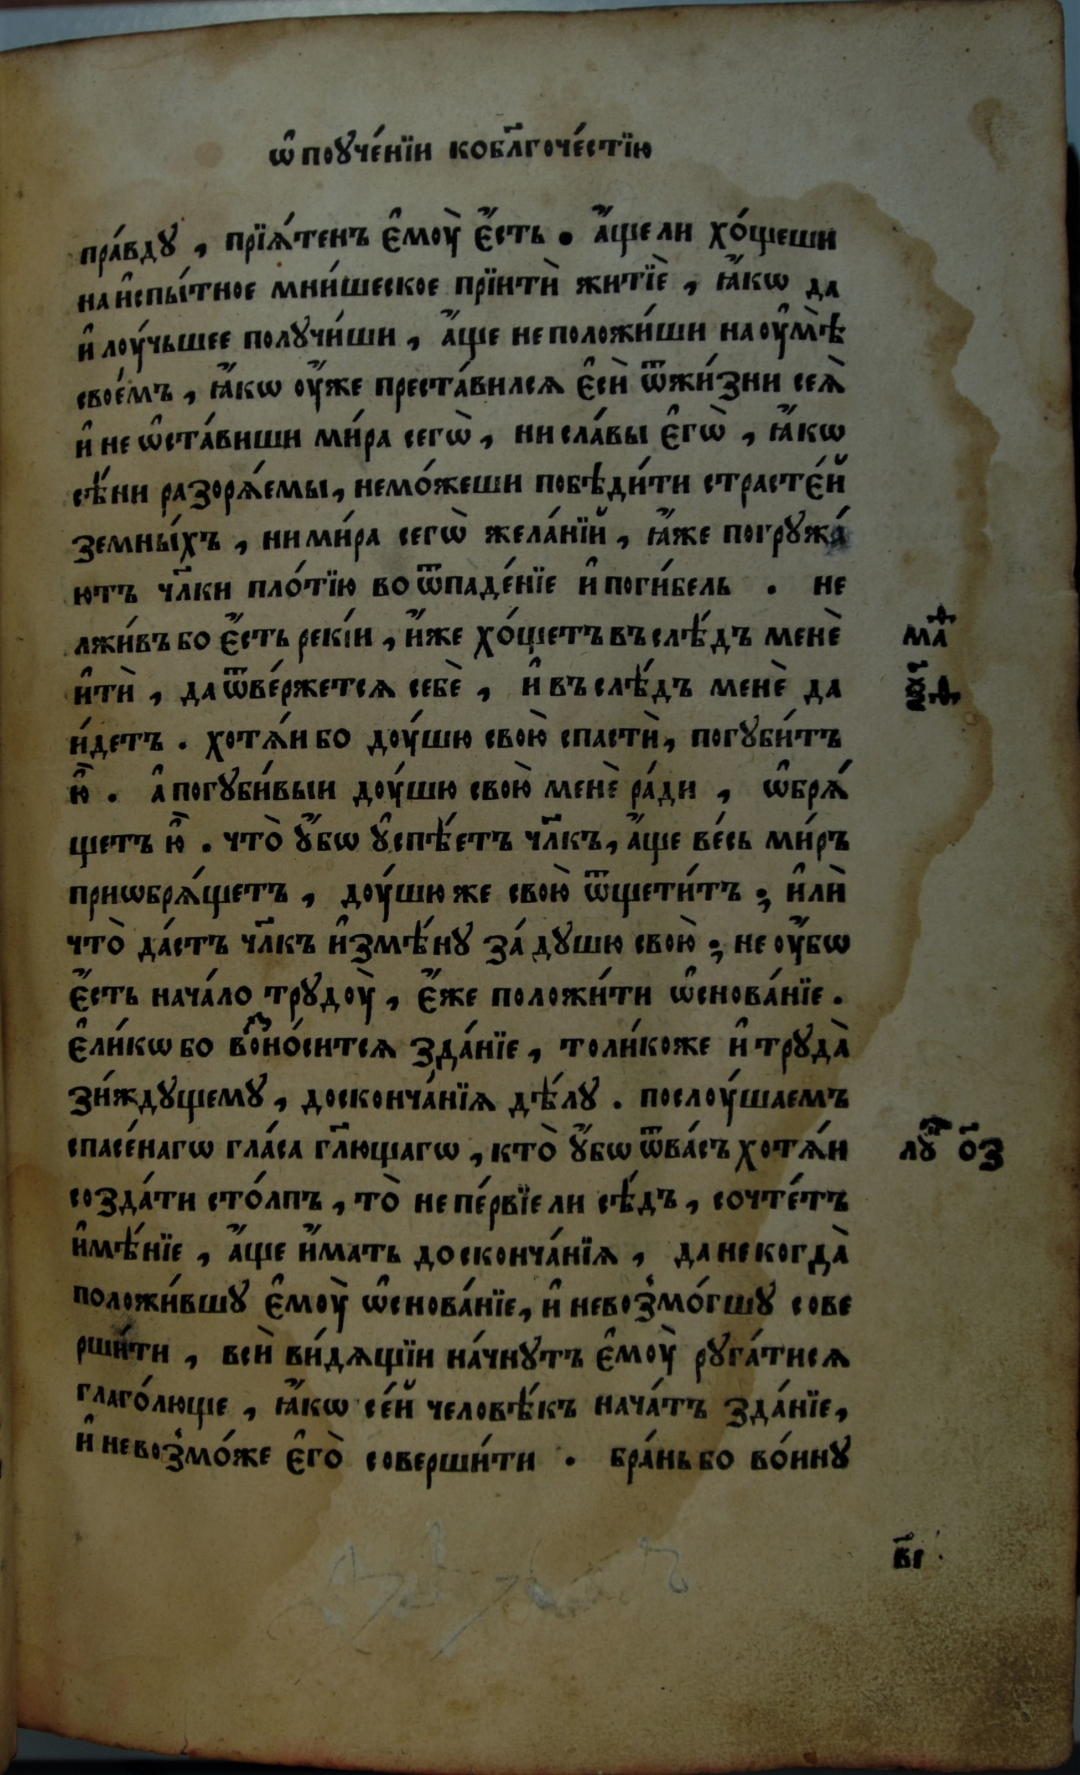 ѡ҆ поꙋче́нїи кобл҃гоче́стїю
пра́вдꙋ , прїѧ́тенъ є҆мꙋ̀ є҆́сть . а҆́ще ли хо́щеши
на и҆спы́тное мни́шеское прїитѝ житїѐ , ꙗ҆́кѡ да
и҆ лоу́чьшее полꙋчи́ши , а҆́ще не положи́ши на оу҆мѣ̀
свое́мъ , ꙗ҆́кѡ оу҆́же преста́вилсѧ є҆сѝ ѿ жи́зни сеѧ̀
и҆ не ѡ҆ста́виши ми́ра сегѡ̀ , ни сла́вы є҆гѡ̀ , ꙗ҆́кѡ
сѣ́ни разорѧ́емы , немо́жеши побѣди́ти страсте́й
земны́хъ , ни ми́ра сегѡ̀ жела́нїй , ꙗ҆́же погрꙋжа́
ютъ чл҃ки пло́тїю во ѿпаде́нїе и҆ поги́бель . не
лжи́въ бо є҆́сть реки́и , и҆́же хо́щетъ въ слѣ́дъ менѐ
и҆тѝ , да ѿве́ржетсѧ себѐ , и҆ въ слѣ́дъ менѐ да
и́детъ . хотѧ́и бо доу́шю свою̀ спастѝ , погꙋби́тъ
ю҆̀ . а҆ погꙋби́выи доу́шю свою̀ менѐ ра́ди , ѡ҆брѧ́
щетъ ю҆̀ . что̀ ꙋ҆́бѡ ꙋ҆спѣ́етъ чл҃къ , а҆́ще ве́сь ми́ръ
приѡбрѧ́щетъ , доу́шю же свою̀ ѿщети́тъ ; и҆лѝ
что̀ да́стъ чл҃къ и҆змѣ́нꙋ за́ дꙋшю свою̀ ; не оу҆́бѡ
є҆́сть нача́ло трꙋдоу̀ , є҆́же положи́ти ѡ҆снова́нїе .
є҆ли́кѡ бо воⷥно́ситсѧ зда́нїе , толи́коже и҆ трꙋда̀
зи́ждꙋщемꙋ , досконча́нїѧ дѣ́лꙋ . послоу́шаемъ
спасе́нагѡ гла́са гл҃ющагѡ , кто̀ ꙋ҆́бѡ ѿ ва́съ хотѧ́и
созда́ти сто́лпъ , то̀ не пе́рвїе ли сѣ́дъ , сочте́тъ
и҆мѣ́нїе , а҆́ще и҆́мать до сконча́нїѧ , да некогда̀
положи́вшꙋ є҆моу̀ ѡ҆снова́нїе , и҆ невозмо́гшꙋ сове
рши́ти , всѝ ви́дѧщїи на́чнꙋтъ є҆моу̀ рꙋга́тисѧ
глаго́люще , ꙗ҆́кѡ се́й человѣ́къ нача́тъ зда́нїе ,
и҆ невозмо́же є҆го̀ соверши́ти . бра́нь бо во́инꙋ
маⷴ
лꙋⷦ҇ о҃з
в҃і